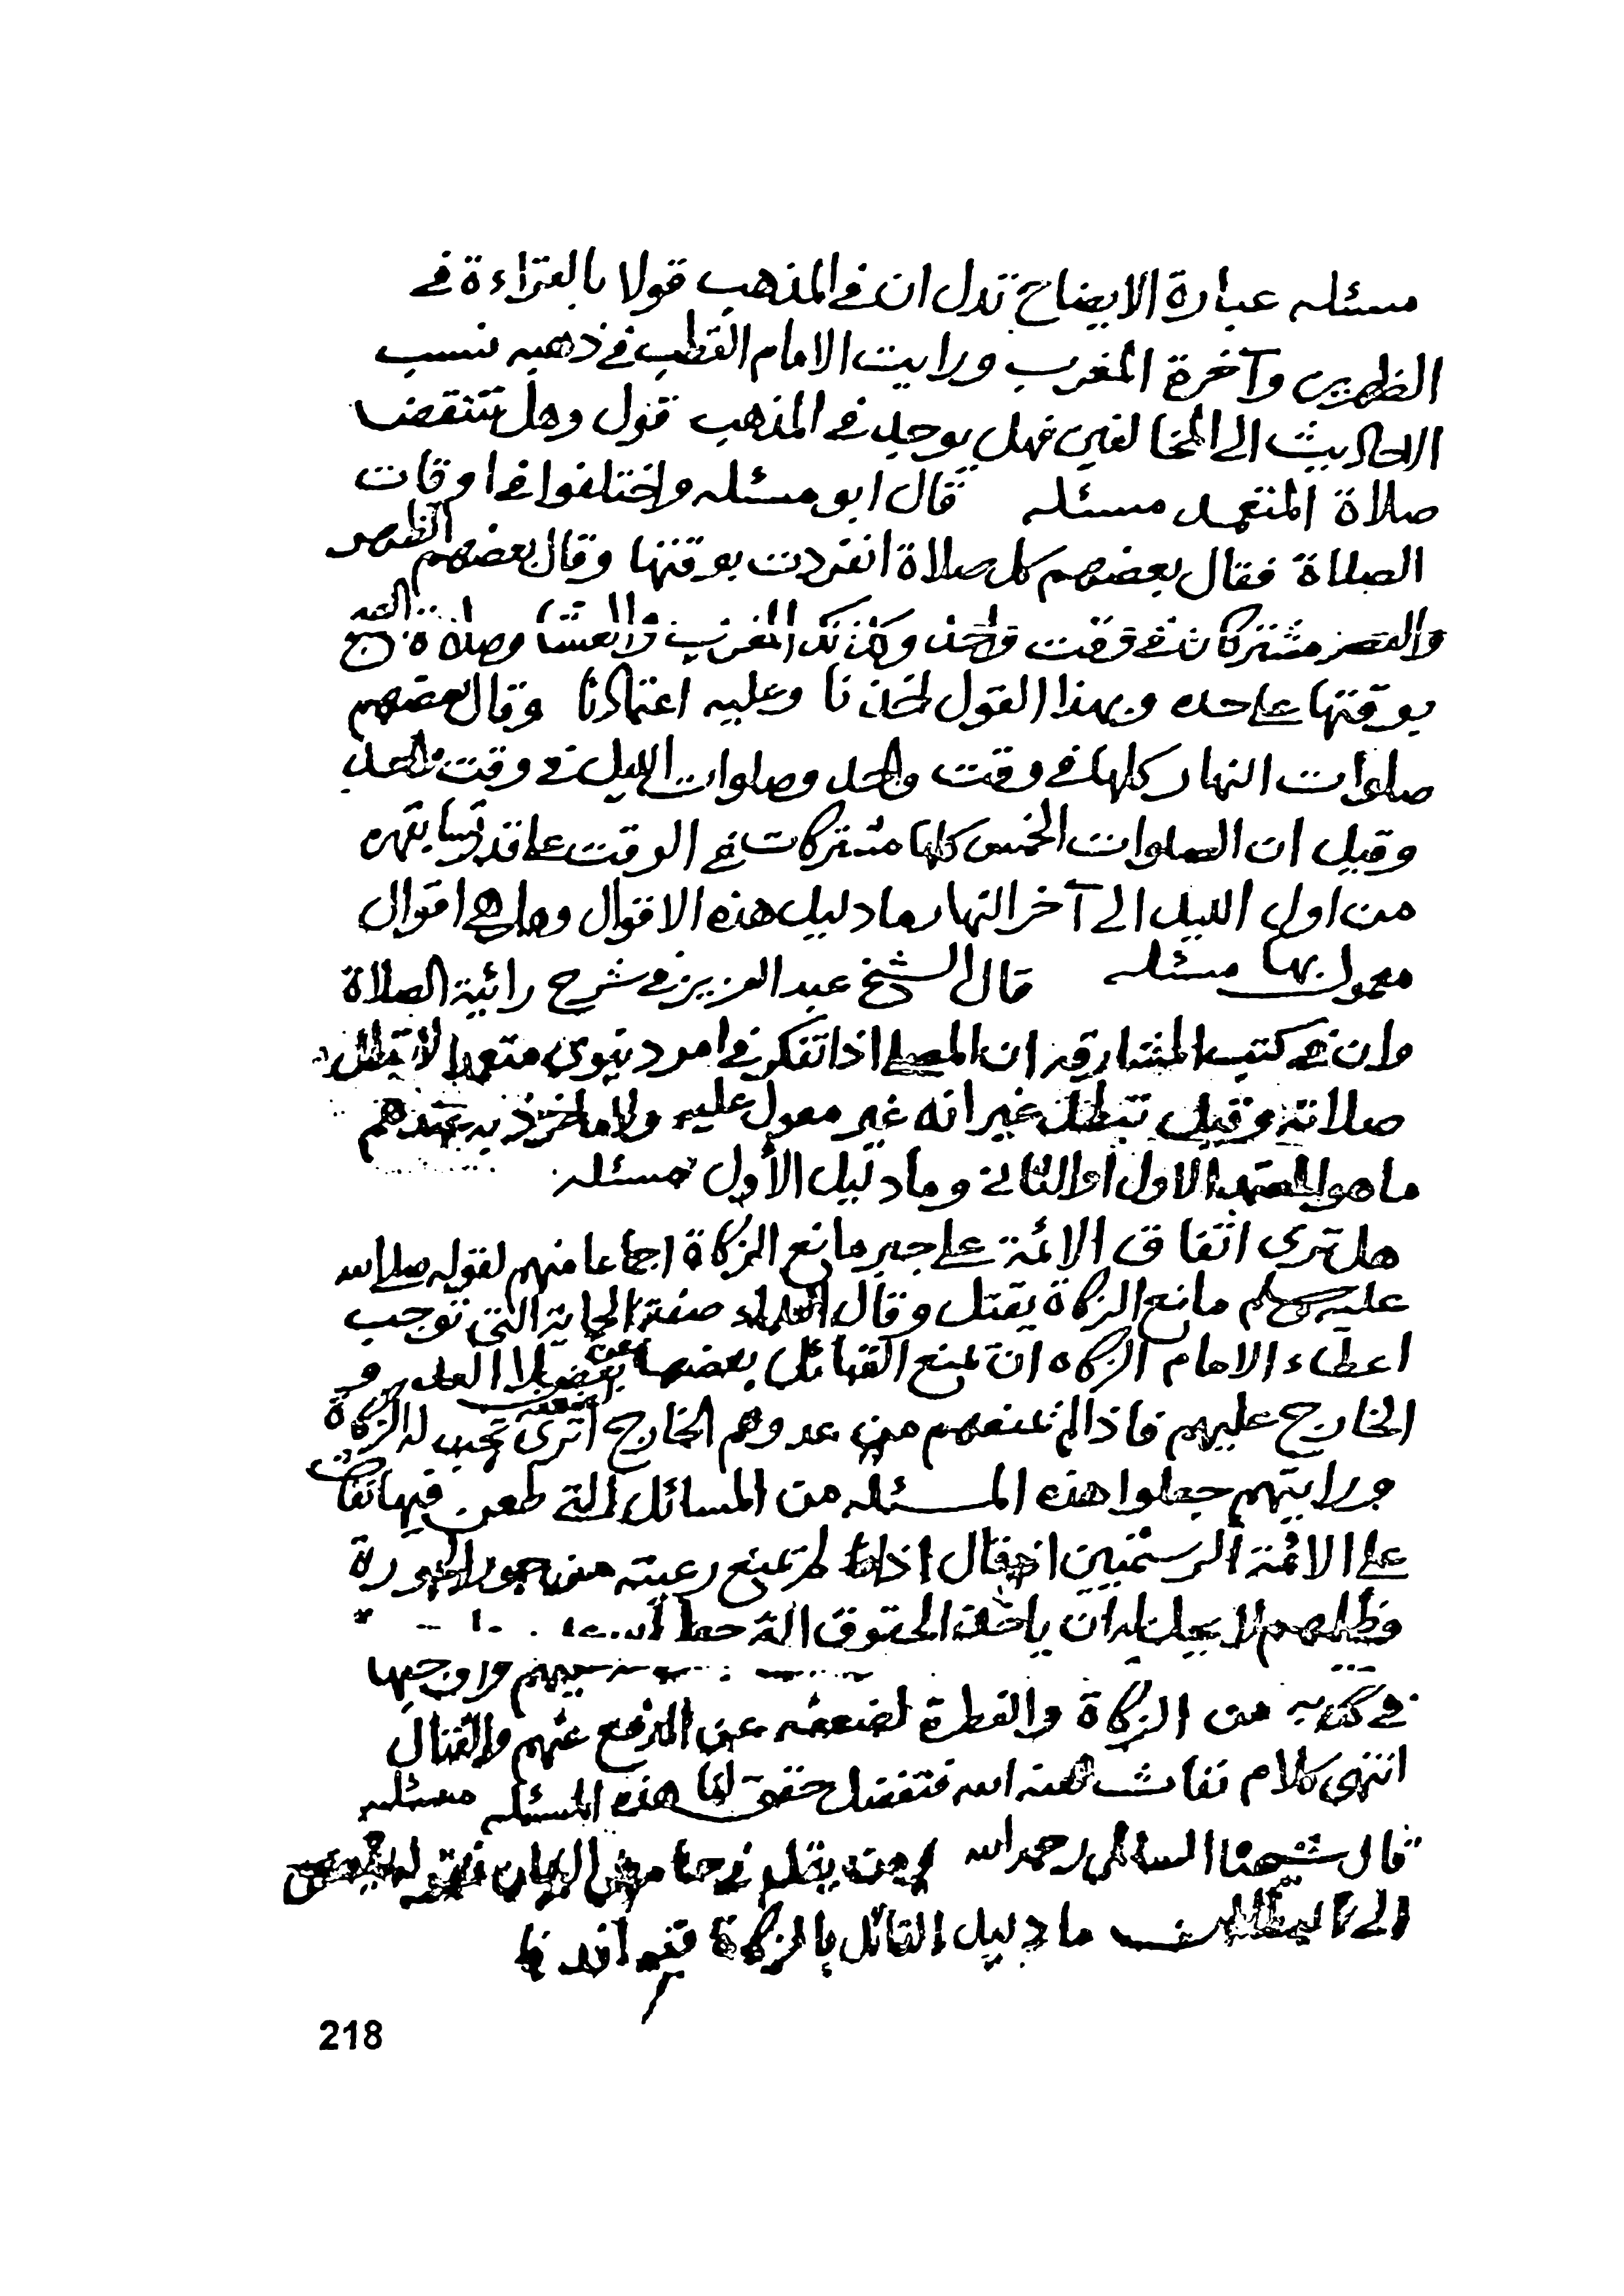 مسئله عبارة الايضاح تدل ان في المذهب قولا بالقراءة في
الظهرين وآخرة المغرب ورايت الامام القطب في ذهبه نسب
الاحاديث الى المخالفين فهل يوجد في المذهب قول وهل تنتقض
صلاة المتعمد مسئله قال ابو مسئله واختلفوا في اوقات
الصلاة فقال بعضهم كل صلاة انفردت بوقتها وقال بعضهم الظهر
والعصر مشتركان في وقت واحد وكذلك المغرب والعشا وصلاة
بوقتها على حده وبهذا القول اخذنا وعليه اعتمادنا وقال بعضهم
صلوات النهار كلها في وقت واحد وصلوات الليل في وقت واحد
وقيل ان الصلوات الخمس كلها مشتركات في الوقت على قدر
من اول الليل الى آخر النهار ما دليل هذه الاقوال وهل هي اقوال
معمول بها مسئله قال الشيخ عبد العزيز في شرح رائية الصلاة
وان في كتب المشارقه ان المصلي اذا تفكر في امر دنيوي متعمدا لا تبطل
صلاته وقيل تبطل غير انه غير معول عليه ولا ماخوذ به عندهم
ما هو المعتمد الاول او الثاني وما دليل الأول مسئله
هل ترى اتفاق الائمة على جبر مانع الزكاة اجماعا منهم لقوله صلى الله
عليه وسلم مانع الزكاة يقتل وقال العلماء صفة الحماية التي توجب
اعطاء الامام الزكاه ان تمنع القبائل بعضها عن بعض
الخارج عليهم فاذا لم تمنعهم من عدوهم الخارج اترى تجب له الزكاة
ورايتهم جعلوا هذه المسئله من المسائل التي طعن فيها نفاث
على الائمة الرستميين اذ قال اذا لم تمنع رعيته من جور الجورة
وظلمهم لا يحل له ان ياخذ الحقوق التي
واوجبها
في كتابه من الزكاة والفطرة لضعفه عن الدفع عنهم والقتال
انتهى كلام نفاث لعنه الله فتفضل حقق لنا هذه المسئله مسئله
قال شيخنا السالمي رحمه الله
الى ما دليل القائل بالزكاة
218